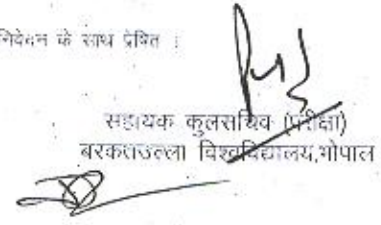 निवेदन के साथ प्रेषित :
सहायक कुलसचिव (परीक्षा)
बरकतउल्ला विश्वविद्यालय,भोपाल